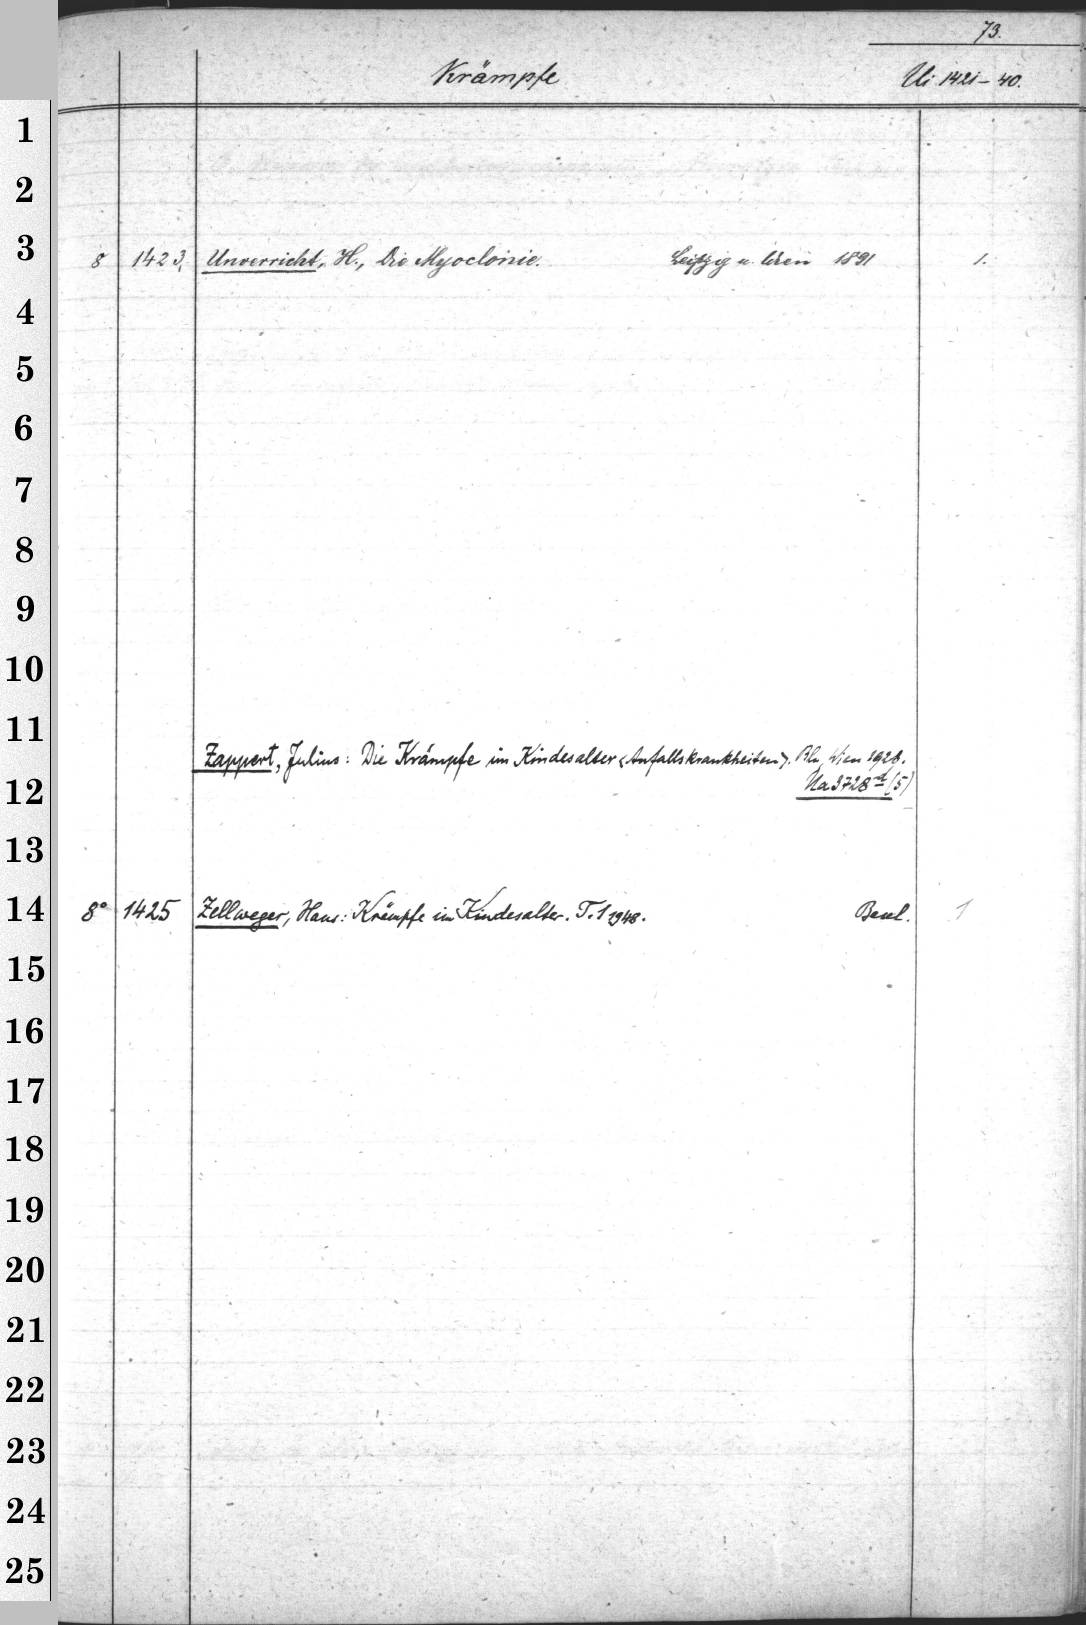 73.
Krämpfe Ui 1421-40.
1
2
3 8 1423, Unverricht, H., Die Myoclonie. Leipzig u. Wien 1891 1.
4
5
6
7
8
9
10
11 Zappert, Julius: Die Krämpfe im Kindesalter <Anfallskrankheiten>. Bln, Wien 1928.
12 Ua 3728 d (5)
13
14 8° 1425 Zellweger, Hans: Krämpfe im Kindesalter. T. 1 1948. Basel. 1
15
16
17
18
19
20
21
22
23
24
25